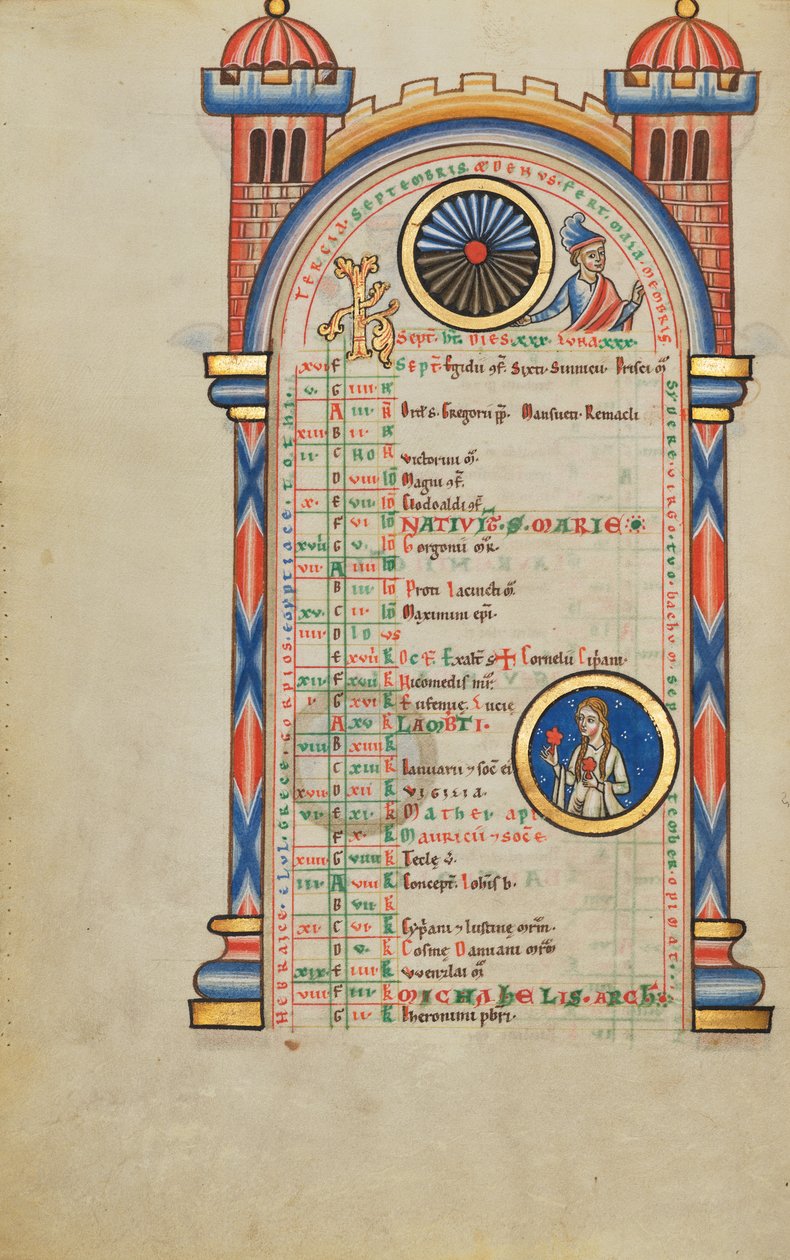 TERCIA·SEPTEMBRIS·& DENUS·FERT·MALA·MEMBRIS
K
Sept̄· ht̄· DIES·xxx· LUNA·xxx·
xvi F Sept̄· Egidii ꝯf̄· Sixti· Sinnicii· Prisci m̄
v· G iiii· N̄
A iii· N̄ Ord̄· s· Gregorii p̄p̄· Mansueti· Remacli
xiii· B ii· N̄
ii· C NO N̄ Victorini m̄·
D viii· ID̄ Magni ꝯf̄·
x· E vii· ID̄ Clodoaldi ꝯf̄·
F vi ID̄ NATIVIT̄·S·MARIE
xvii G v· ID̄ Gorgonii m̄r·
vii· A iiii ID̄
B iii· ID̄ Proti Iacincti m̄·
xv· C ii· ID̄ Maximini ep̄i·
iiii· D ID us
E xviii K Exalt̄ s ✝ Cornelii Cip̄ani·
xii· F xvii K Nicomedis m̄r·
i· G xvi K Eufemię· Lucię
A xv K LAMB̄TI·
viiii B xiiii K
C xiii K Ianuarii ⁊ soc̄ ei
xvii D xii K VIGILIA·
vi· E xi· K Mathei ap̄
F x· K Mauricii ⁊ soc̄·
xiiii G viiii K Teclę v̄·
iii· A viii K Concept̄· Ioh̄is b·
B vii· K̄
xi· C vi· K̄ Cyp̄ani ⁊ Iustinę m̄rm̄·
D v· K̄ Cosmę Damiani m̄rm̄
xix· E iiii· K̄ Wenzlai m̄
viii· F iii· K̄ MICHAHELIS·ARCH̄·
G ii· K Iheronimi pb̄ri·
HEBRAICE·ELUL·GRECE·GORPIOS·EGYPTIACE·TOTHI·
SYDERE·VIRGO·TUO·BACHUM·SEP TEMBER·OPIMAT·